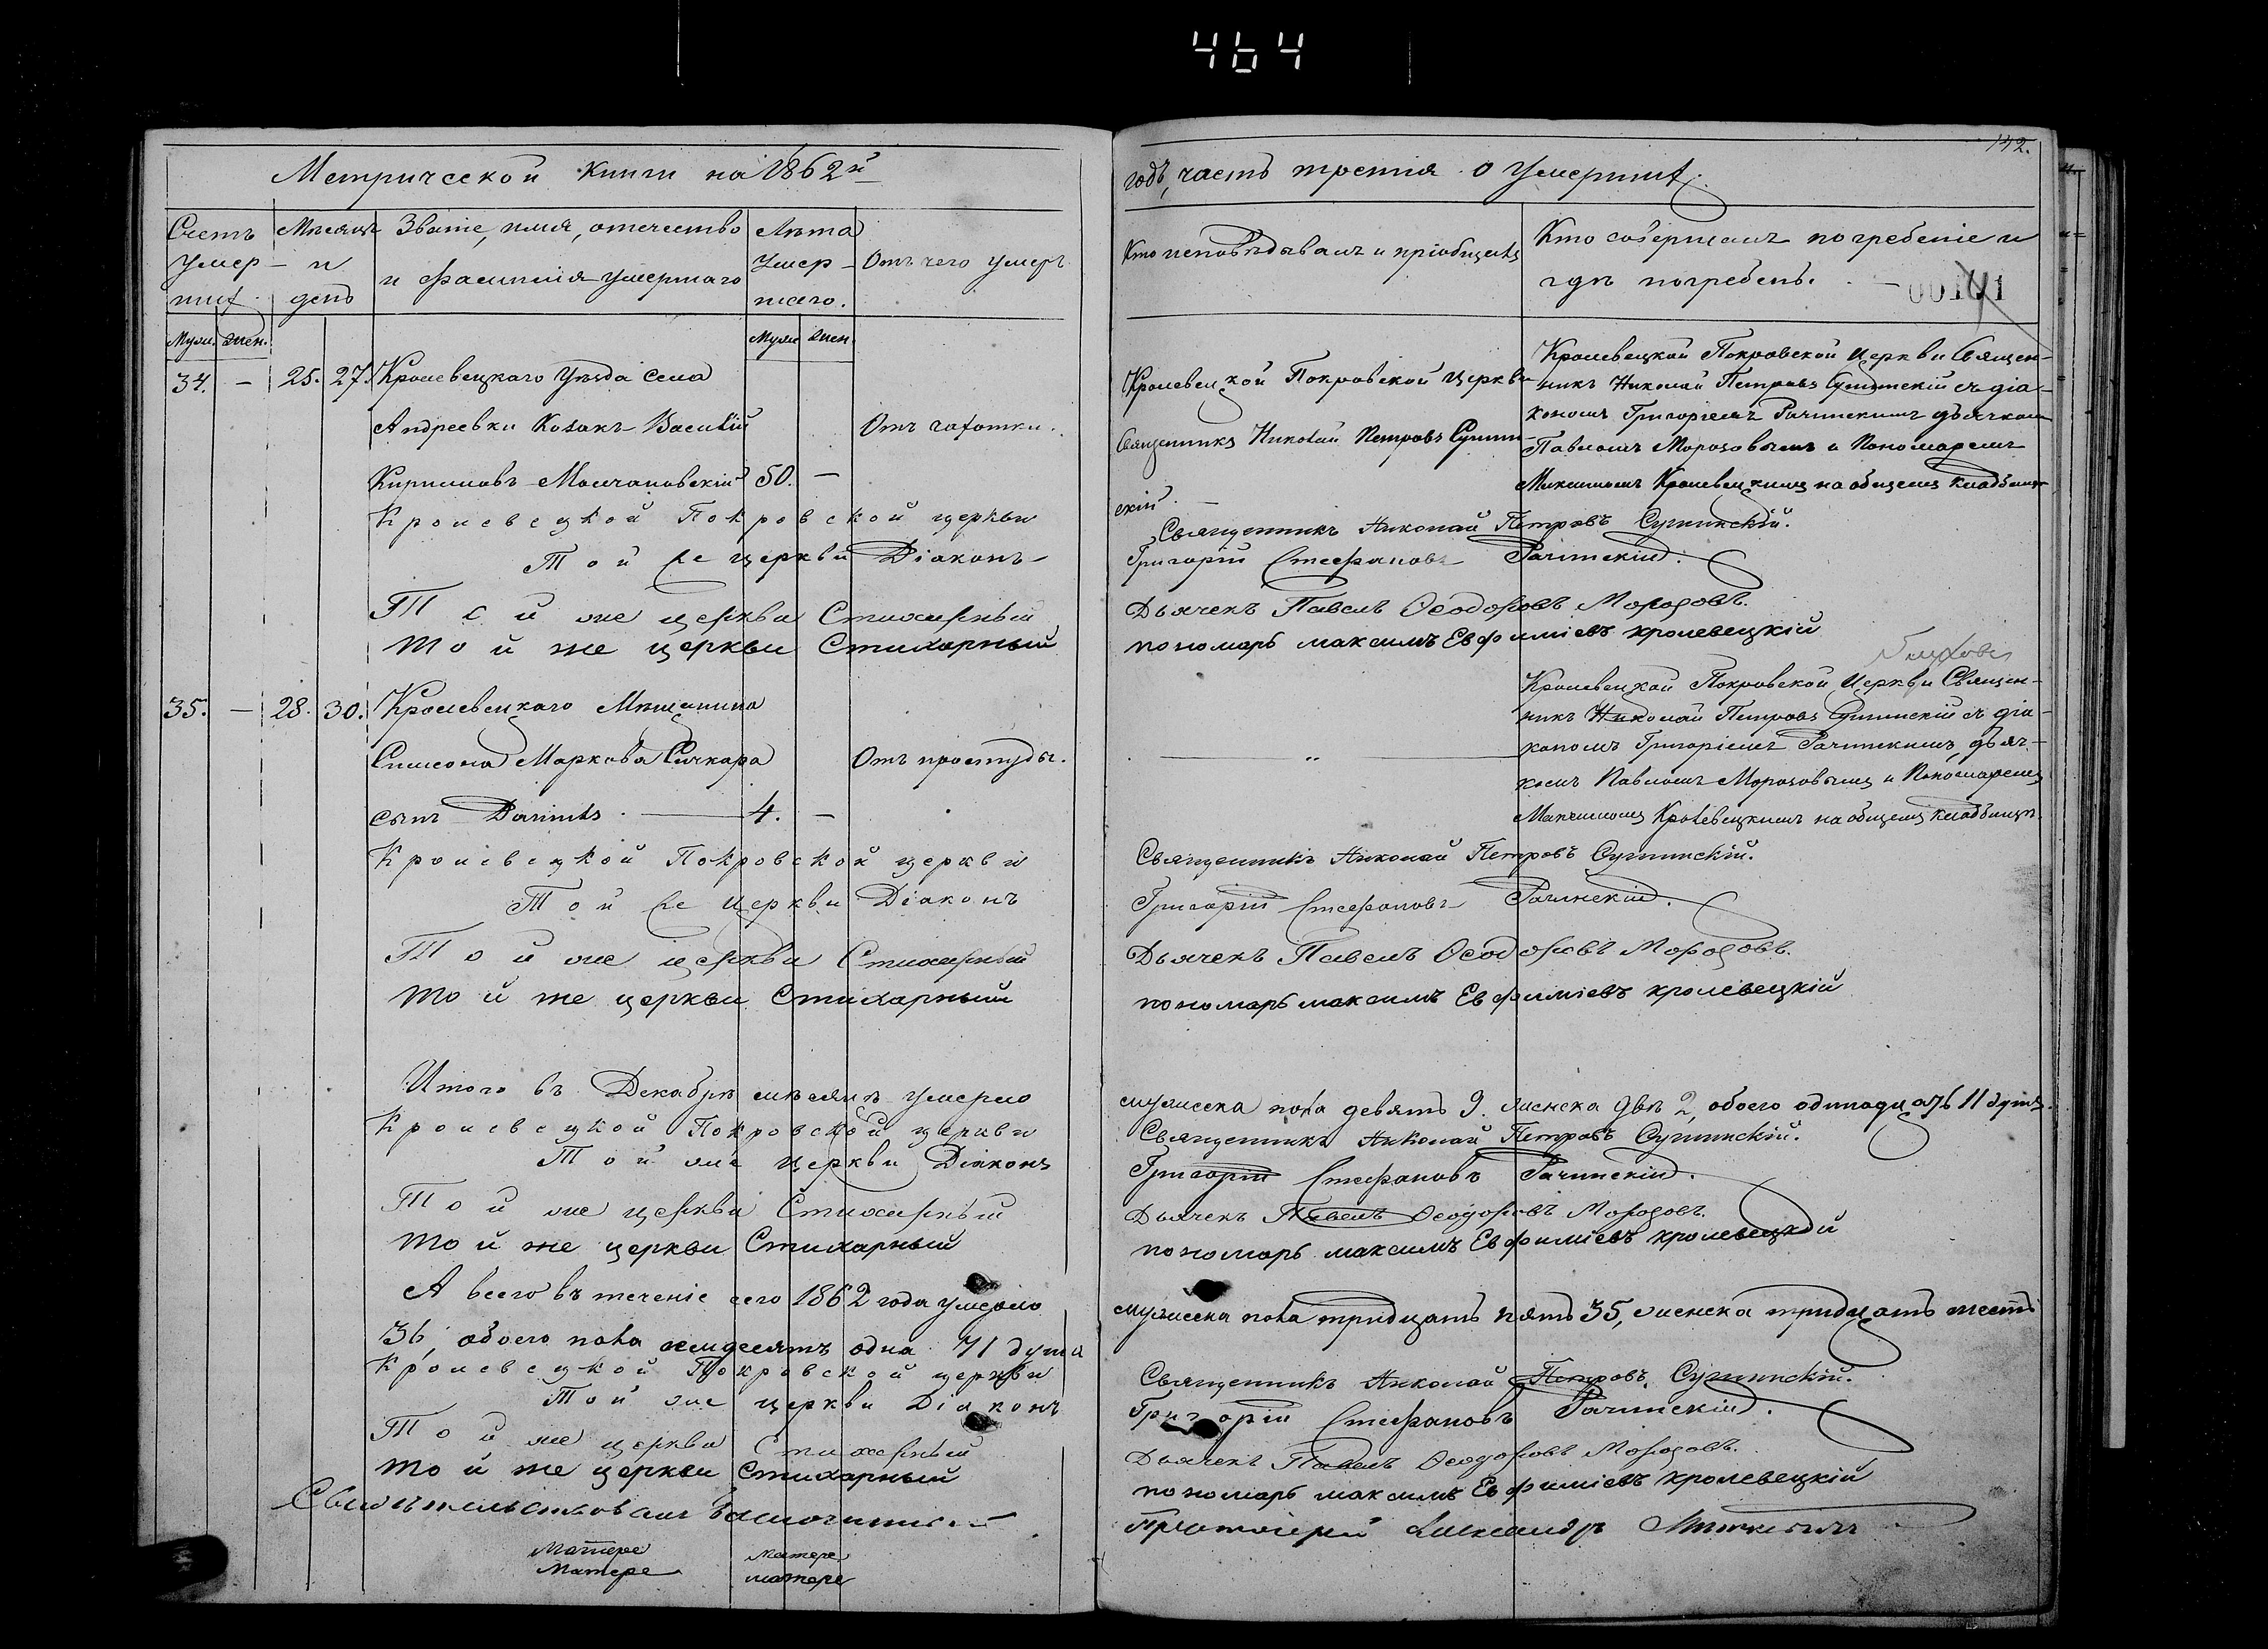 464
142.
Метрической книги на 1862й
годъ, часть третія о умершихъ.
Счетъ умер-шихъ.
Мѣсяцъ и день
Званіе, имя, отечество и фамилія умершаго
Лѣта умер-шаго.
Отъ чего умеръ
Кто исповѣдывалъ и пріобщалъ
Кто совершалъ погребеніе и гдѣ погребенъ.
Муж. Жен.
Муж. Жен.
34. — 25. 27. Кролевецкаго Уѣзда Села
Андреевки Козакъ Василій
Отъ чахотки.
Кириловъ Молчановскій 50. —
Кролевецкой Покровской Церкви
Священникъ Николай Петровъ
скій
Кролевецкой Покровской Церкви Священ-
никъ Николай Петровъ съ діа-
кономъ Григоріемъ Рачинскимъ дьячкомъ
Павломъ Морозовымъ и Пономаремъ
Максимомъ Кролевецкимъ на общемъ кладбищѣ
Кролевецкой Покровской церкви Священникъ Николай Петровъ
Той же церкви Діаконъ Григорій Стефановъ Рачинскій.
Той же церкви Стихарный Дьячекъ Павелъ Ѳеодоровъ Морозовъ.
той же церкви Стихарный пономарь максимъ Евфиміевъ кролевецкій
35. — 28. 30. Кролевецкаго Мѣщанина
Симеона Маркова Сичкара
Отъ простуды.
сынъ Даніилъ. 4. —
— „ —
Кролевецкой Покровской Церкви Священ-
никъ Николай Петровъ съ діа-
кономъ Григоріемъ Рачинскимъ, дьяч-
комъ Павломъ Морозовымъ и Пономаремъ
Максимомъ Кролевецкимъ на общемъ кладбищѣ.
Кролевецкой Покровской церкви Священникъ Николай Петровъ
Той же Церкви Діаконъ Григорій Стефановъ Рачинскій.
Той же церкви Стихарный Дьячекъ Павелъ Ѳеодоровъ Морозовъ.
той же церкви Стихарный пономарь максимъ Евфиміевъ кролевецкій
Итого въ Декабрѣ мѣсяцѣ умерло мужеска пола девять 9. женска двѣ 2, обоего одинадцать 11 душъ.
Кролевецкой Покровской церкви Священникъ Николай Петровъ
Той же церкви Діаконъ Григорій Стефановъ Рачинскій.
Той же церкви Стихарный Дьячекъ Павелъ Ѳеодоровъ Морозовъ.
той же церкви Стихарный пономарь максимъ Евфиміевъ кролевецкій
А всего въ теченіе сего 1862 года умерло мужеска пола тридцать пять 35, женска тридцать шесть
36, обоего пола семдесятъ одна 71 душа
Кролевецкой Покровской церкви Священникъ Николай Петровъ
Той же церкви Діаконъ Григорій Стефановъ Рачинскій.
Той же церкви Стихарный Дьячекъ Павелъ Ѳеодоровъ Морозовъ.
той же церкви Стихарный пономарь максимъ Евфиміевъ кролевецкій
Свидѣтельствовалъ благочинный Протоіерей Александръ
Матере Матере
Матере матере